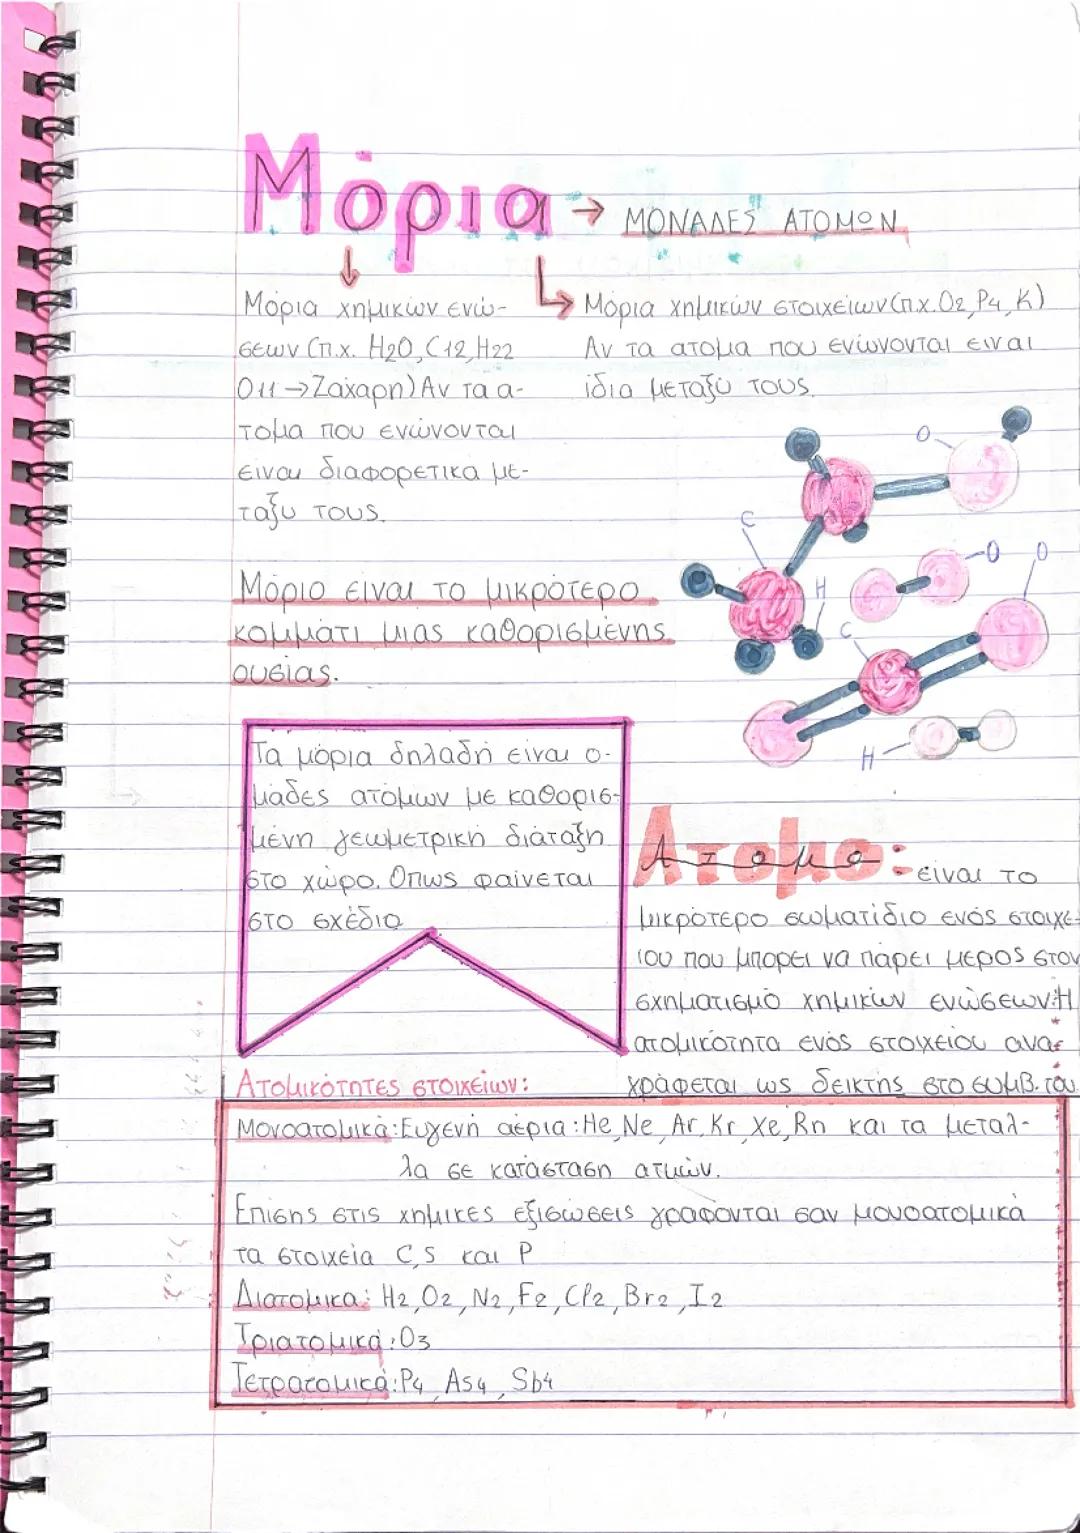 Μόρια → ΜΟΝΑΔΕΣ ΑΤΟΜΩΝ
Μόρια χημικών ενώ-
σεων (π.χ. H2O, C12, H22
O11 → Ζάχαρη) Αν τα ά-
τομα που ενώνονται
είναι διαφορετικά με-
ταξύ τους.
Μόρια χημικών στοιχείων (π.χ. O2, P4, K)
Αν τα άτομα που ενώνονται είναι
ίδια μεταξύ τους.
Μόριο είναι το μικρότερο
κομμάτι μιας καθορισμένης
ουσίας.
O
C
H
O
O
C
H
Τα μόρια δηλαδή είναι ο-
μάδες ατόμων με καθορισ-
μένη γεωμετρική διάταξη
στο χώρο. Όπως φαίνεται
στο σχέδιο
Άτομο: είναι το
μικρότερο σωματίδιο ενός στοιχε-
ίου που μπορεί να πάρει μέρος στον
σχηματισμό χημικών ενώσεων. Η
ατομικότητα ενός στοιχείου ανα-
γράφεται ως δείκτης στο συμβ. του
Ατομικότητες στοιχείων:
Μονοατομικά: Ευγενή αέρια: He, Ne, Ar, Kr, Xe, Rn και τα μέταλ-
λα σε κατάσταση ατμών.
Επίσης στις χημικές εξισώσεις γράφονται σαν μονοατομικά
τα στοιχεία C, S και P
Διατομικά: H2, O2, N2, F2, Cl2, Br2, I2
Τριατομικά: O3
Τετρατομικά: P4, As4, Sb4